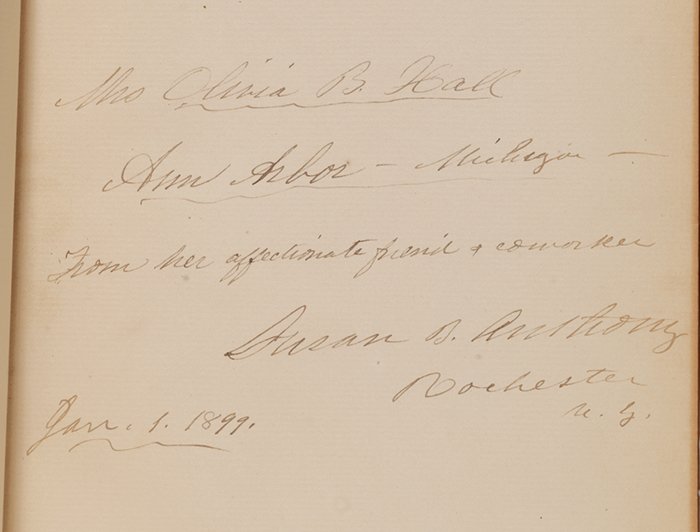 Mrs Olivia B. Hall
Ann Arbor - Michigan -
From her affectionate friend & coworker
Susan B. Anthony
Rochester
N. Y.
Jan. 1. 1899.